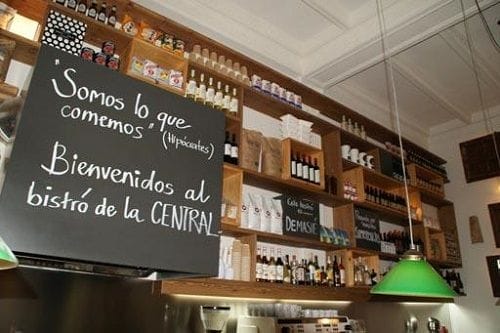 "Somos lo que
comemos"
(Hipócrates)
Bienvenidos al
bistró de la CENTRAL
DEMASIÉ